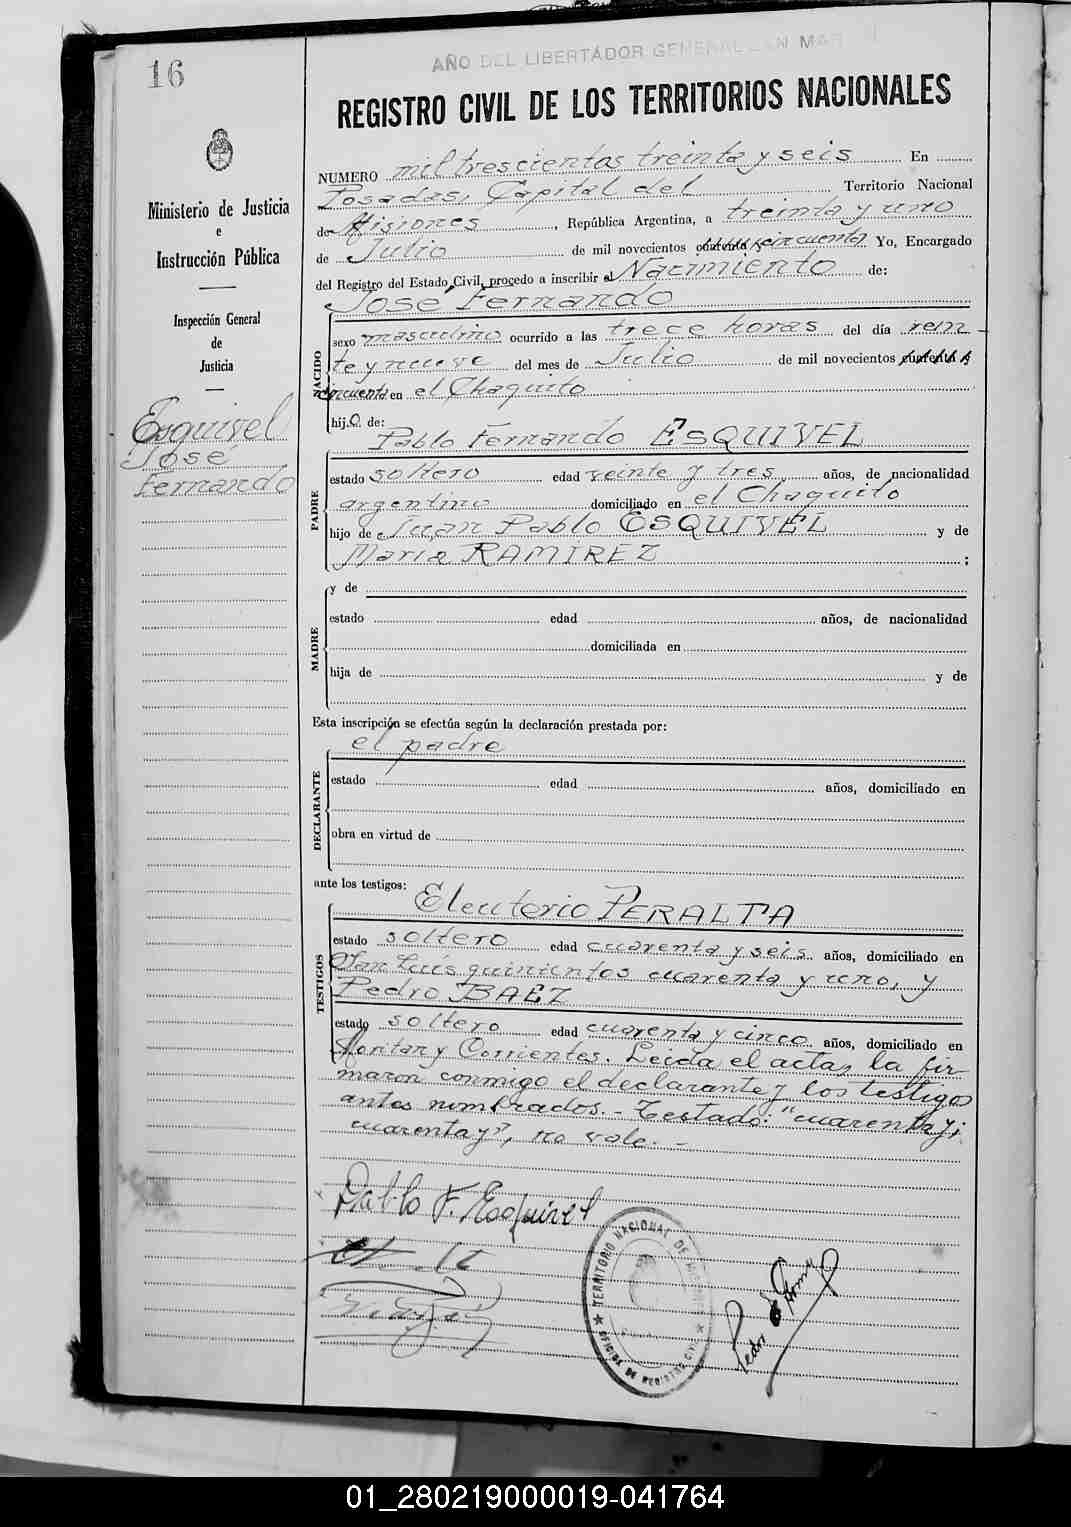 16
AÑO DEL LIBERTADOR GENERAL SAN MARTIN
REGISTRO CIVIL DE LOS TERRITORIOS NACIONALES
Ministerio de Justicia
e
Instrucción Pública
Inspección General
de
Justicia
Esquivel
José
Fernando
NUMERO mil trescientos treinta y seis En
Posadas, Capital del Territorio Nacional
de Misiones, República Argentina, a treinta y uno
de Julio de mil novecientos cincuenta Yo, Encargado
del Registro del Estado Civil, procedo a inscribir el Nacimiento de:
José Fernando
NACIDO
sexo masculino ocurrido a las trece horas del día vein-
te y nueve del mes de Julio de mil novecientos cuarenta y
cincuenta en el Chaquito
hijo de:
Pablo Fernando ESQUIVEL
PADRE
estado soltero edad veinte y tres años, de nacionalidad
argentino domiciliado en el Chaquito
hijo de Juan Pablo ESQUIVEL y de
María RAMIREZ ;
MADRE
y de
estado edad años, de nacionalidad
domiciliada en
hija de y de
Esta inscripción se efectúa según la declaración prestada por:
el padre
DECLARANTE
estado edad años, domiciliado en
obra en virtud de
ante los testigos:
Eleuterio PERALTA
TESTIGOS
estado soltero edad cuarenta y seis años, domiciliado en
San Luis quinientos cuarenta y uno, y
Pedro BAEZ
estado soltero edad cuarenta y cinco años, domiciliado en
Moritan y Corrientes. Leída el acta, la fir-
maron conmigo el declarante y los testigos
antes nombrados.- Testado: "cuarenta y;
cuarenta y", no vale.-
Pablo F. Esquivel
TERRITORIO NACIONAL DE MISIONES
OFICINA DE REGISTRO CIVIL
Pedro
01_280219000019-041764